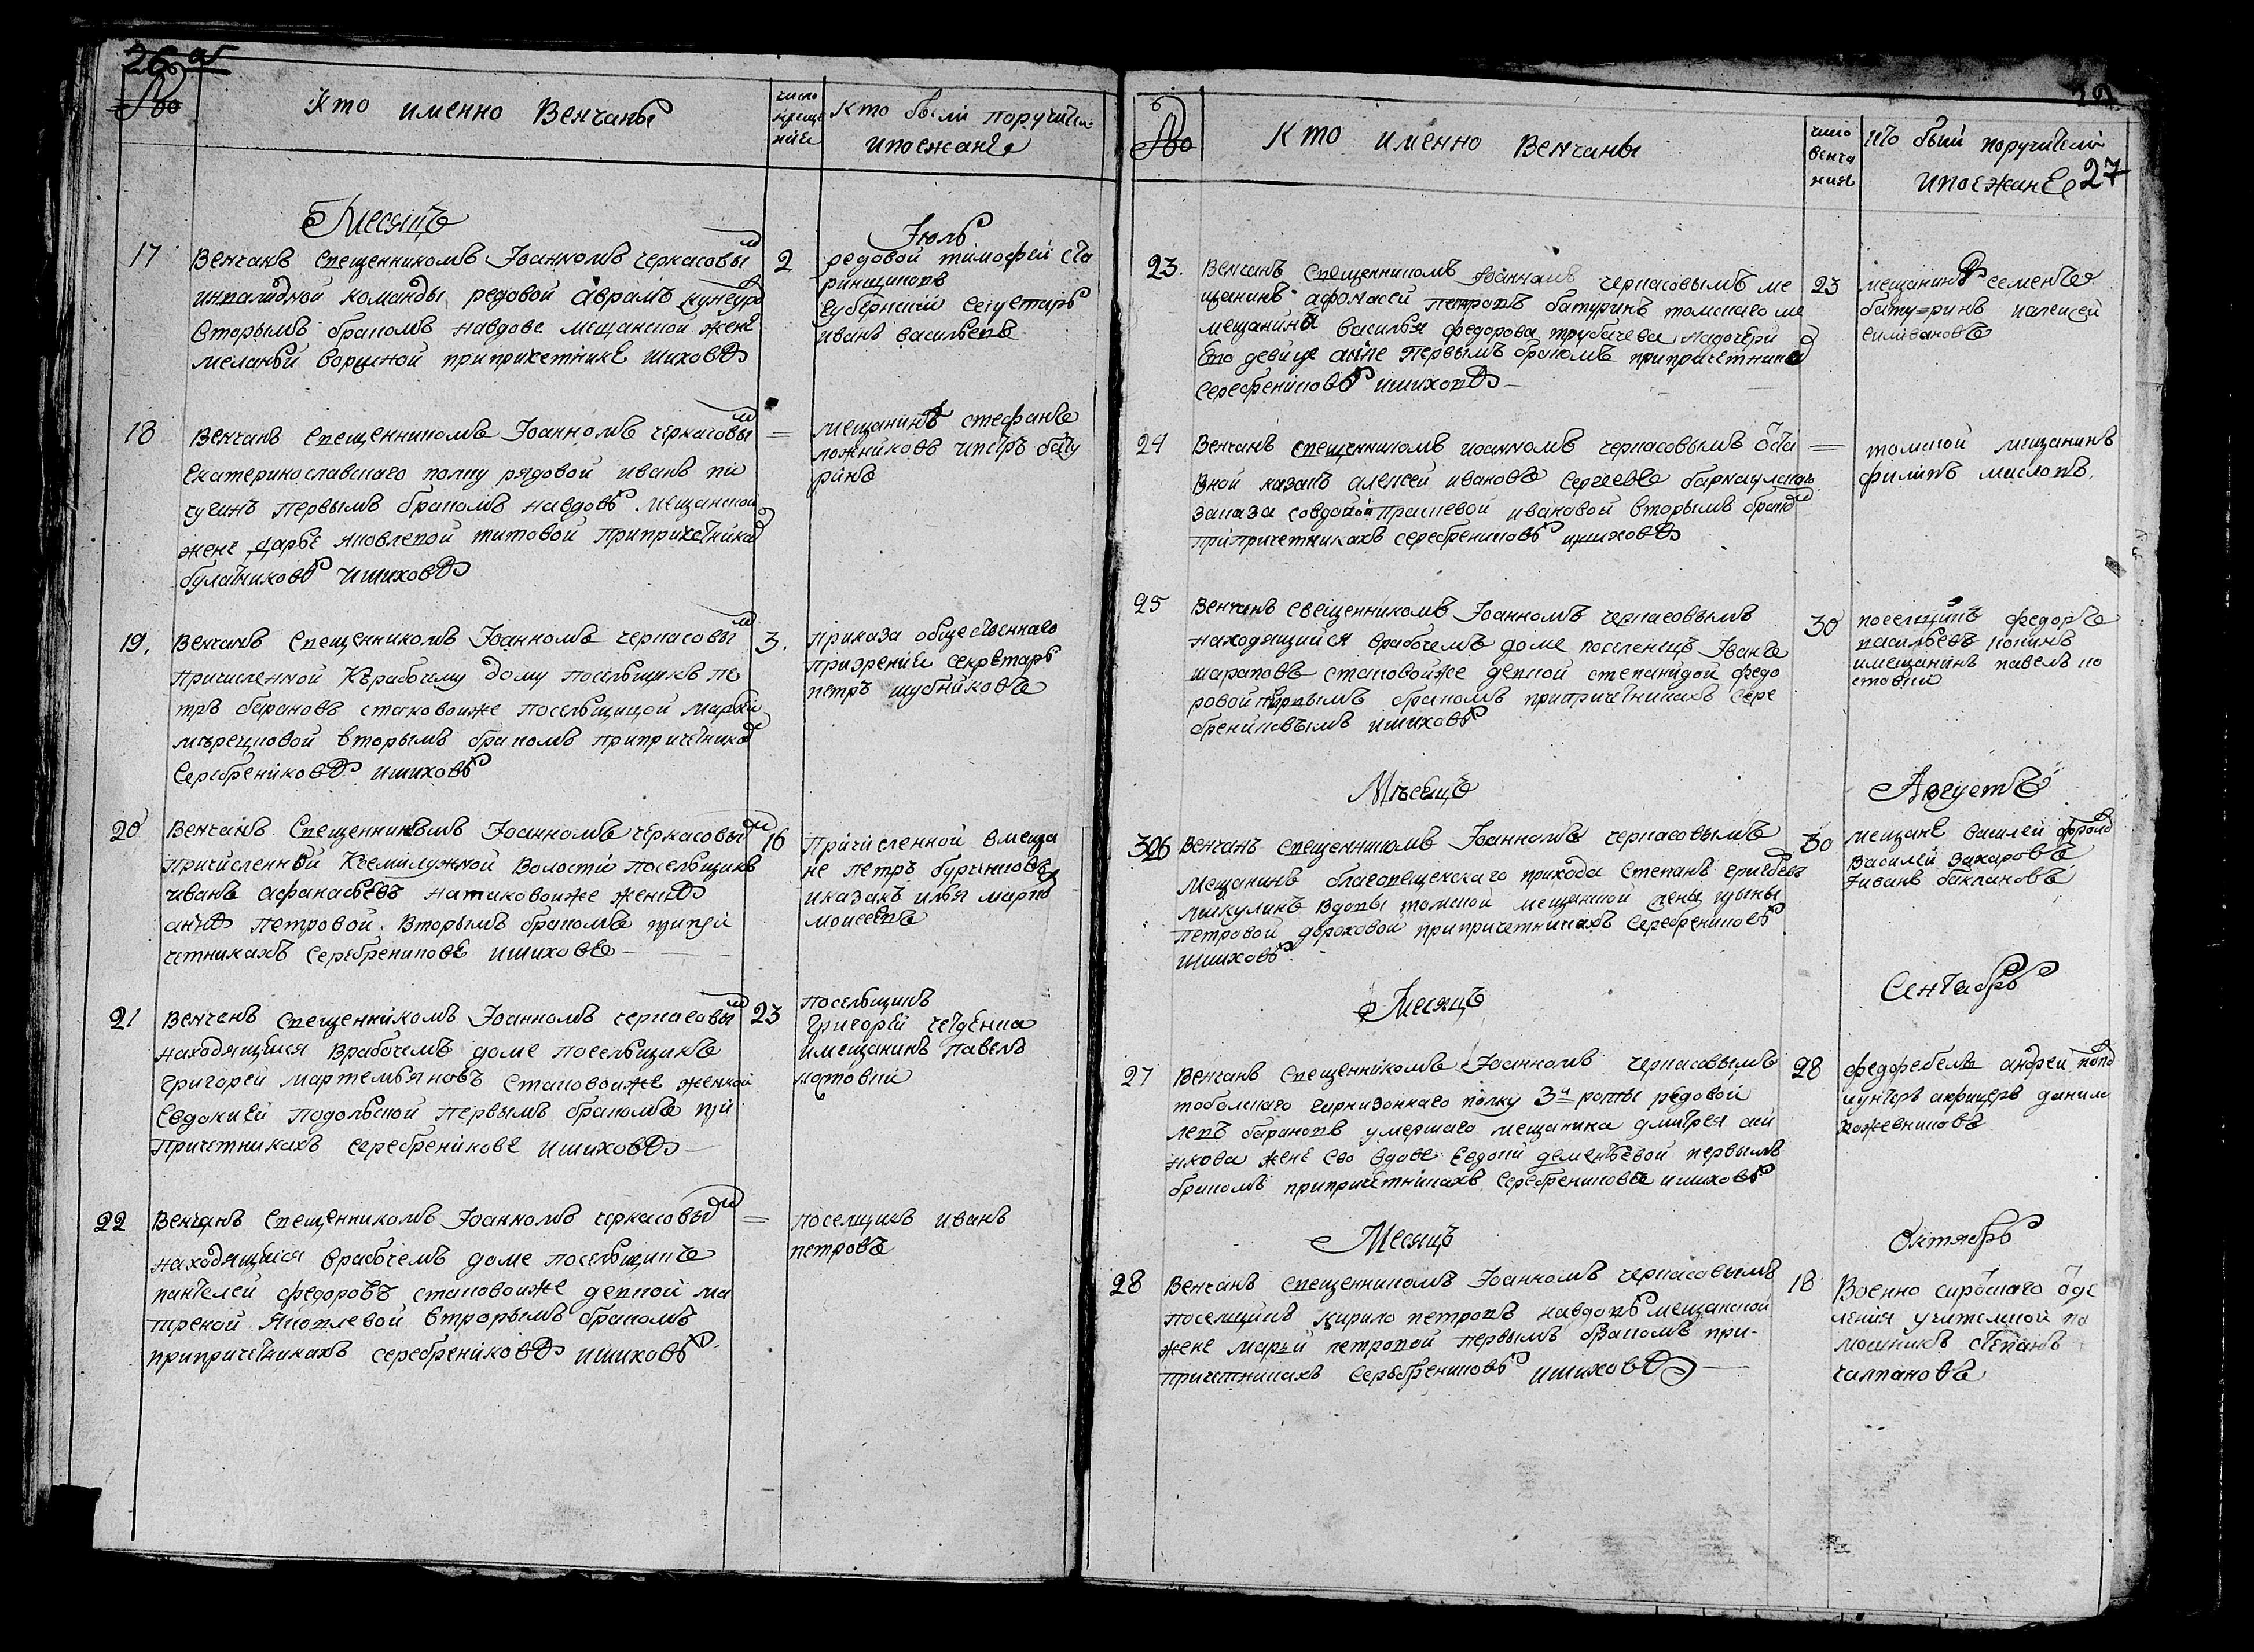 26 об
№
Кто именно Венчаны
число
Кто были поручители
и поезжане
Месяцъ
Июль
17
Венчанъ священникомъ Иоанномъ черкасовым
2
инвалидной команды редовой аврамъ
вторымъ бракомъ на вдове мещанской жене
меланьи причетнике шихове
редовой тимофей ста
ринщиковъ
губернский секретарь
иванъ васильевъ
18
Венчанъ священникомъ Иоанномъ черкасовым
=
Екатеринославскаго полку рядовой иванъ пи
чугинъ первымъ бракомъ на вдове мещанской
жене дарье яковлевой титовой при причетника
булатникове и шихове
мещанинъ стефанъ
ложниковъ и петръ бату
ринъ
19.
Венчанъ священникомъ Иоанномъ черкасовым
3.
причисленной къ рабочему дому посельщикъ пе
тръ барановъ с таковой же посельщицой марьи
вторымъ бракомъ при причетника
серебреникове и шихове
приказа общественнаго
призрения секретарь
петръ шубниковъ
20
Венчанъ священникомъ Иоанномъ черкасовым
16
причисленный к семилужной волости посельщикъ
иванъ афанасьевъ на таковой же женке
анне петровой вторымъ бракомъ при при
четникахъ серебреникове и шихове
причисленной в меща
не петръ
и казакъ илья марко
моисеевъ
21
Венчанъ священникомъ Иоанномъ черкасовым
23
находящийся в рабочемъ доме посельщикъ
григорей мартемьяновъ с таковой же женкой
евдокией подольской первымъ бракомъ при
причетникахъ серебреникове и шихове
посельщикъ
григорей
и мещанинъ павелъ
мотовий
22
Венчанъ священникомъ Иоанномъ черкасовым
=
находящийся в рабочемъ доме посельщикъ
пантелей федоровъ с таковой же девкой ма
треной яковлевой вторымъ бракомъ
при причетникахъ серебреникове и шихове
поселщикъ иванъ
петровъ
№
Кто именно венчаны
число
венча
ния
кто были поручители
и поезжане
27
23.
Венчанъ священникомъ Иоанномъ черкасовымъ ме
23
щанинъ афонасей петровъ батуринъ томскаго ме
мещанина василья федорова трубачева на дочери
его девице анне первымъ бракомъ при причетника
серебреникове и шихове
мещанинъ семенъ
батуринъ и алексей
селивановъ
24
Венчанъ священникомъ иоанномъ черкасовымъ
=
казакъ алексей ивановъ сергеевъ барнаулскаго
заказа со вдовой ивановой вторымъ браком
при причетникахъ серебреникове и шихове
томской мещанинъ
филипъ масловъ.
25
Венчанъ священникомъ Иоанномъ черкасовымъ
30
находящийся в рабочемъ доме поселенецъ Иванъ
шараповъ с таковой же девкой степанидой федо
ровой первымъ бракомъ при причетникахъ сере
брениковымъ и шихове
поселщикъ федоръ
васильевъ
и мещанинъ павелъ
Месецъ
Августъ
26
Венчанъ священникомъ Иоанномъ черкасовымъ
30
мещанинъ благовещенскаго прихода степанъ григорьевъ
микулинъ вдовы томской мещанской жены
петровой дороховой при причетникахъ серебреникове
и шихове
мещане василей
василей захаровъ
и иванъ баклановъ
Месяцъ
Сентябрь
27
Венчанъ священникомъ Иоанномъ черкасовымъ
28
тобольскаго гарнизоннаго полку 3й роты редовой
барановъ умершаго мещанина дмитрея
жене его вдове евдокии дементьевой первымъ
бракомъ при причетникахъ серебрениковъ и шихове
федфебель андрей попо
и унтеръ афицеръ данило
кожевниковъ
Месяцъ
Октябрь
28
Венчанъ священникомъ Иоанномъ черкасовымъ
18
поселщикъ кирило петровъ на вдове мещанской
жене марьи петровой первымъ бракомъ при-
причетникахъ серебреникове и шихове
военно сиротскаго отде
ления учителской по
мошникъ степанъ
чалпановъ